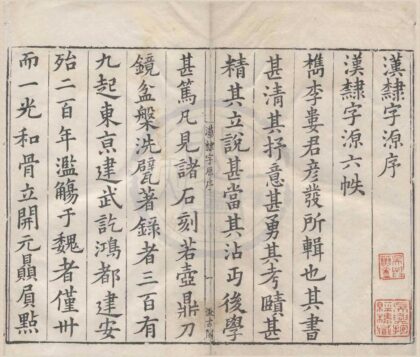 漢隸字源序
漢隸字源六帙
檇李婁君彥發所輯也其書
甚清其抒意甚勇其考賾甚
精其立說甚當其沾丐後學
漢隸字原序
一
汲古閣
甚篤凡見諸石刻若壺鼎刀
鏡盆槃洗甓著錄者三百有
九起東亰建武訖鴻都建安
殆二百年濫觴于魏者僅卅
而一光和骨立開元贔屓點